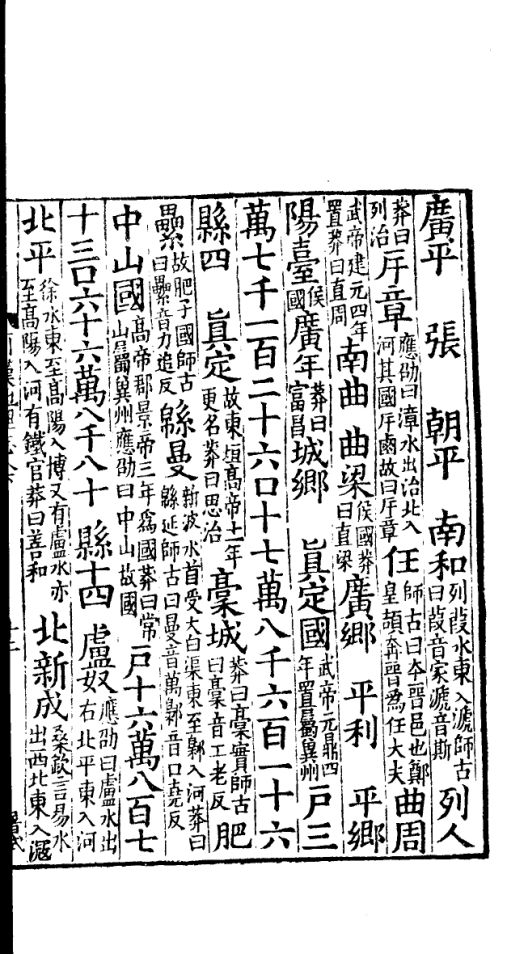 廣平 張 朝平 南和列葭水東入㴲師古曰葭音家㴲音斯 列人
莽曰列治 斥章應劭曰漳水出治北入河其國斥鹵故曰斥章 任師古曰本晉邑也鄭皇頡奔晉為任大夫 曲周
武帝建元四年置莽曰直周 南曲 曲梁侯國莽曰直梁 廣鄉 平利 平鄉
陽臺侯國 廣年莽曰富昌 城鄉 眞定國武帝元鼎四年置屬冀州 戶三
萬七千一百二十六口十七萬八千六百一十六
縣四 眞定故東垣高帝十一年更名莽曰思治 槀城莽曰槀實師古曰槀音工老反 肥
纍故肥子國師古曰纍音力追反 緜曼斯洨水首受大白渠東至鄡入河莽曰緜延師古曰曼音萬鄡音口堯反
中山國高帝郡景帝三年爲國莽曰常山屬冀州應劭曰中山故國 戶十六萬八百七
十三口六十六萬八千八十 縣十四 盧奴應劭曰盧水出右北平東入河
北平徐水東至高陽入博又有盧水亦至高陽入河有鐵官莽曰善和 北新成桑欽言易水出西北東入㴲